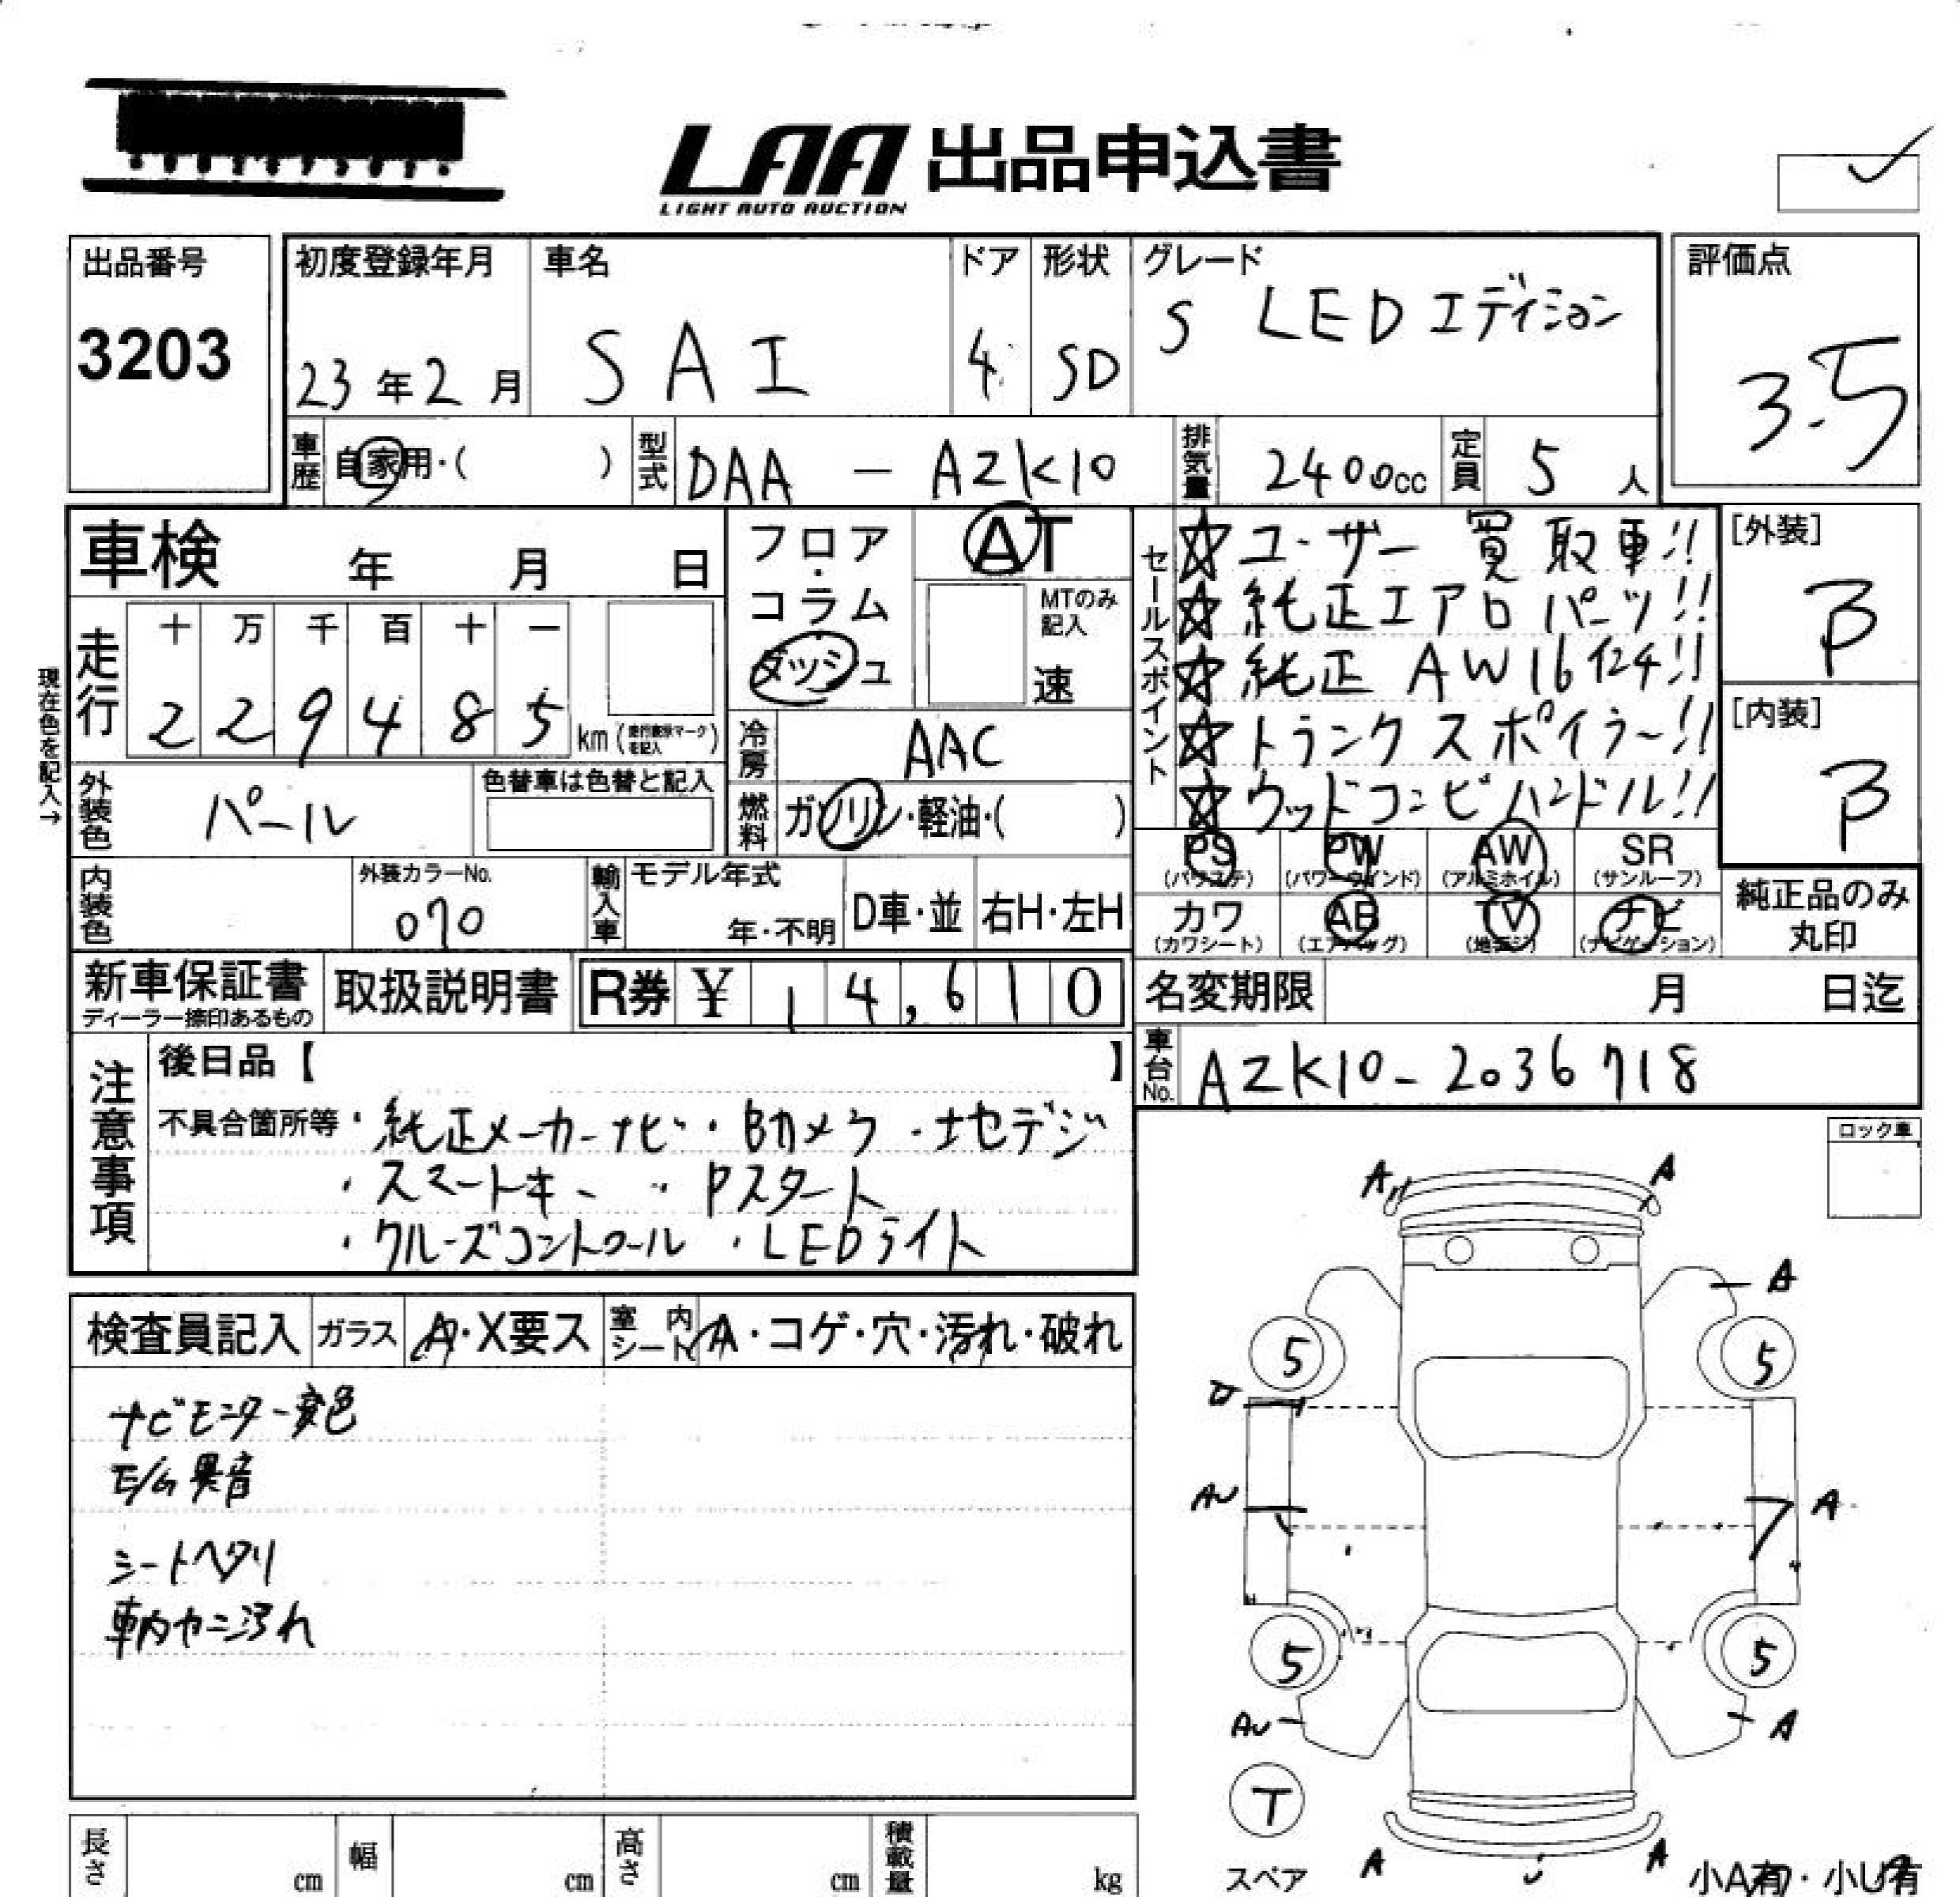 LAA 出品申込書
LIGHT AUTO AUCTION
出品番号
3203
初度登録年月
23年2月
車名
SAI
ドア
4
形状
SD
グレード
S LEDエディション
評価点
3.5
車歴
自家用・( )
型式
DAA - AZK10
排気量
2400cc
定員
5人
車検 年 月 日
フロア・コラム
ダッシュ
AT
MTのみ記入
速
セールスポイント
☆ユーザー買取車!!
☆純正エアロパーツ!!
☆純正AW16インチ!!
☆トランクスポイラー!!
☆ウッドコンビハンドル!!
[外装]
B
[内装]
B
現在色を記入→
走行
十 万 千 百 十 一
2 2 9 4 8 5 km
(走行表示マークを記入)
冷房
AAC
外装色
パール
色替車は色替と記入
燃料
ガソリン・軽油・( )
PS PW AW SR
(パワステ) (パワーウインド) (アルミホイル) (サンルーフ)
カワ AB TV ナビ
(カワシート) (エアバッグ) (地デジ) (ナビゲーション)
純正品のみ
丸印
内装色
外装カラーNo.
070
輸入車
モデル年式
年・不明
D車・並
右H・左H
新車保証書
ディーラー捺印あるもの
取扱説明書
R券 ¥ 14,610
名変期限 月 日迄
車台No.
AZK10-2036718
注意事項
後日品【 】
不具合箇所等・純正メーカーナビ・Bカメラ・地デジ
・スマートキー ・Pスタート
・クルーズコントロール ・LEDライト
ロック車
検査員記入
ガラス
A・X要ス
室内シート
A・コゲ・穴・汚れ・破れ
ナビモニター変色
E/G異音
シートヘタリ
車内ヤニ汚れ
A A
A
5 5
AU A
5 5
AU A
T
スペア
A A
小A有・小U有
長さ cm
幅 cm
高さ cm
積載量 kg